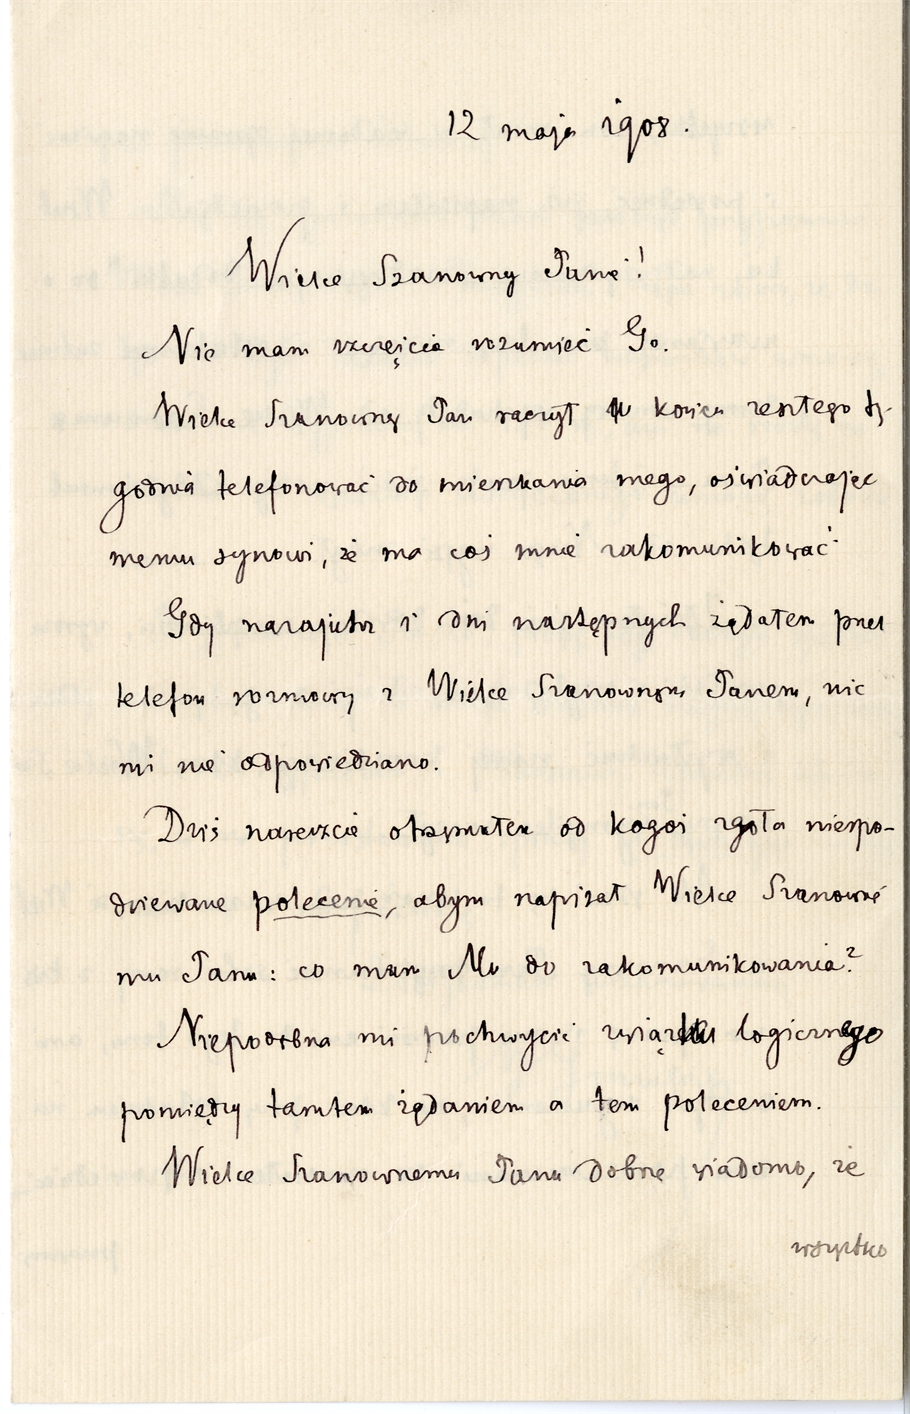 12 maja 1908.
Wielce Szanowny Panie!
Nie mam szczęścia rozumieć Go.
Wielce Szanowny Pan raczył w końcu zeszłego ty-
godnia telefonować do mieszkania mego, oświadczając
memu synowi, że ma coś mnie zakomunikować
Gdy nazajutrz i dni następnych żądałem przez
telefon rozmowy z Wielce Szanownym Panem, nic
mi nie odpowiedziano.
Dziś nareszcie otrzymałem od kogoś zgoła niespo-
dziewane polecenie, abym napisał Wielce Szanowne
mu Panu: co mam Mu do zakomunikowania?
Niepodobna mi pochwycić związku logicznego
pomiędzy tamtem żądaniem a tem poleceniem.
Wielce Szanownemu Panu dobrze wiadomo, że
wszystko